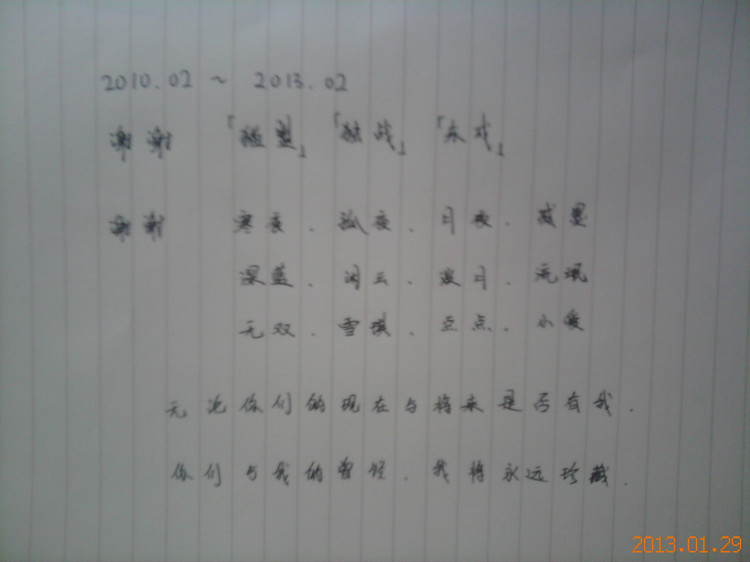 2010.02 ~ 2013.02
谢谢 「 盟」「独战」「 戏」
谢谢 寒夜、孤夜、月夜、 墨
深蓝、闲云、 月、
无双、雪 、 点、小爱
无论你们的现在与将来是否有我.
你们与我的曾经.我将永远珍藏.
2013.01.29